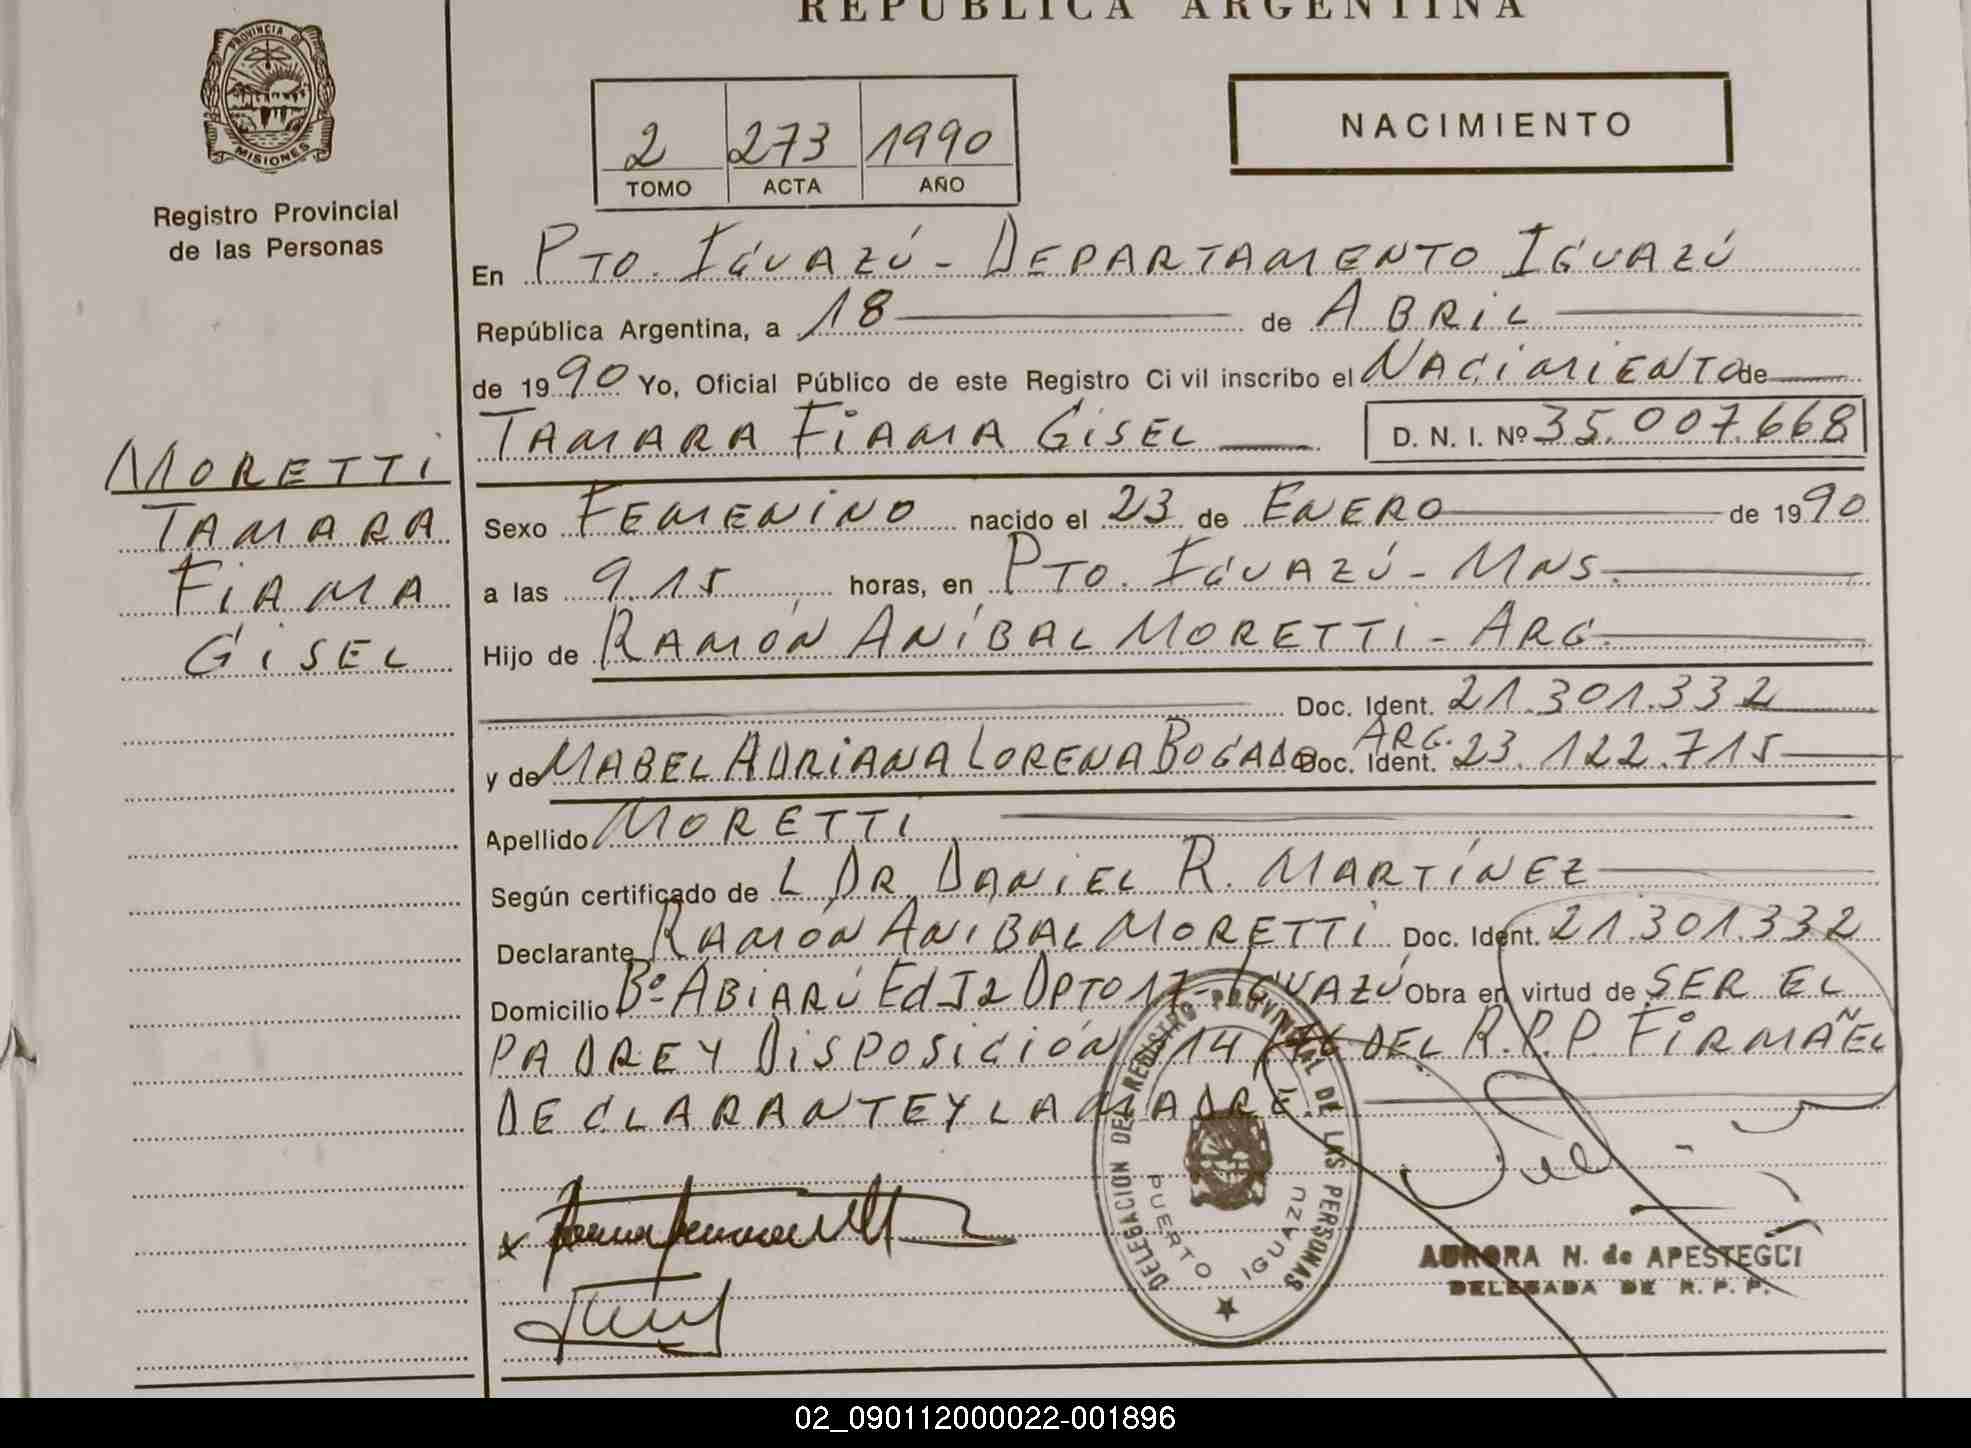 REPUBLICA ARGENTINA
PROVINCIA DE
MISIONES
Registro Provincial
de las Personas
2 273 1990
TOMO ACTA AÑO
NACIMIENTO
En PTO. IGUAZÚ - DEPARTAMENTO IGUAZÚ
República Argentina, a 18 de ABRIL
de 1990 Yo, Oficial Público de este Registro Civil inscribo el NACIMIENTO de
TAMARA FIAMA GISEL D. N. I. Nº 35.007.668
MORETTI
TAMARA
FIAMA
GISEL
Sexo FEMENINO nacido el 23 de ENERO de 1990
a las 9.15 horas, en PTO. IGUAZÚ - MNS.
Hijo de RAMÓN ANÍBAL MORETTI - ARG.
Doc. Ident. 21.301.332
y de MABEL ADRIANA LORENA BOGADO ARG. Doc. Ident. 23.122.715
Apellido MORETTI
Según certificado de L DR. DANIEL R. MARTÍNEZ
Declarante RAMÓN ANIBAL MORETTI Doc. Ident. 21.301.332
Domicilio Bº ABIARÚ Ed J2 DPTO 17 - IGUAZÚ Obra en virtud de SER EL
PADRE Y DISPOSICIÓN 14/76 DEL R.P.P. FIRMAÑ EL
DECLARANTE Y LA MADRE.
DELEGACION DEL REGISTRO PROVINCIAL DE LAS PERSONAS
PUERTO IGUAZU
AURORA N. de APESTEGUI
DELEGADA DE R. P. P.
02_090112000022-001896